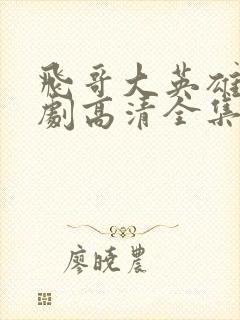 飛哥大英雄
劇高清全集
廖曉農